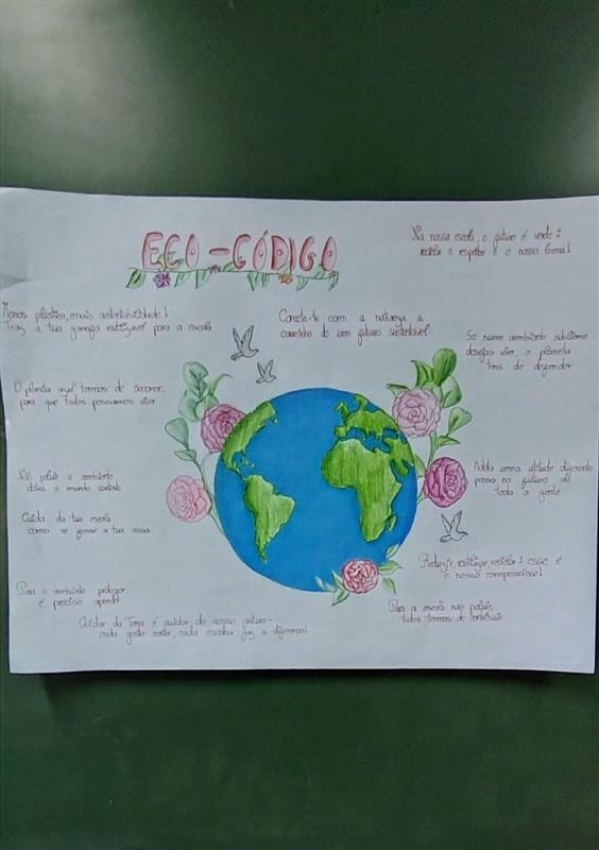 ECO-CÓDIGO
Na nossa escola, o futuro é verde:
reciclar e respeitar é o nosso lema!
Menos plástico, mais sustentabilidade!
Traz a tua garrafa reutilizável para a escola
Conecta-te com a natureza, a
caminho de um futuro sustentável
Se num ambiente sublime
desejas viver, o planeta
tens de defender
O planeta azul temos de socorrer,
para que todos possamos viver
Adota uma atitude diferente
pensa no futuro de
toda a gente
Não poluir o ambiente
deixa o mundo contente
Cuida da tua escola
como se fosse a tua casa
Reduzir, reutilizar, reciclar: esse é
o nosso compromisso!
Para o ambiente proteger,
é preciso aprender
Para a escola não poluir,
todos temos de contribuir
Cuidar da Terra é cuidar do nosso futuro-
cada gesto conta, cada escolha faz a diferença!